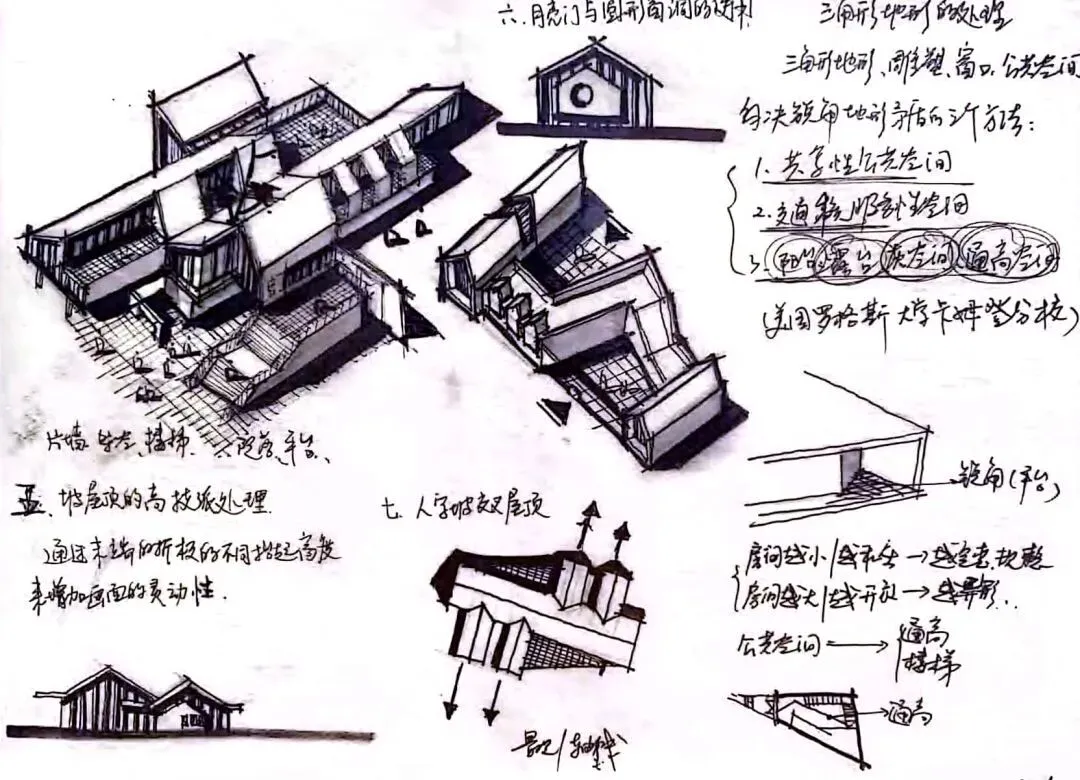 六、月亮门与圆形窗洞的
三角形地形的处理
三角形地形、雕塑、窗口、公共空间
解决锐角地形矛盾的3个方法：
1. 共享性公共空间
2. 交通 空间
3. 阳台 露台 灰空间 通高空间
(美国罗格斯大学卡姆登分校)
片墙 楼梯、平台、
五、坡屋顶的高技派处理
通过末端的折板的不同抬起高度
来增加画面的灵动性.
七、人字坡交叉屋顶
锐角(平台)
房间越小/越私密→越完整、规整
房间越大/越开放→越异形..
公共空间→通高
楼梯
通高